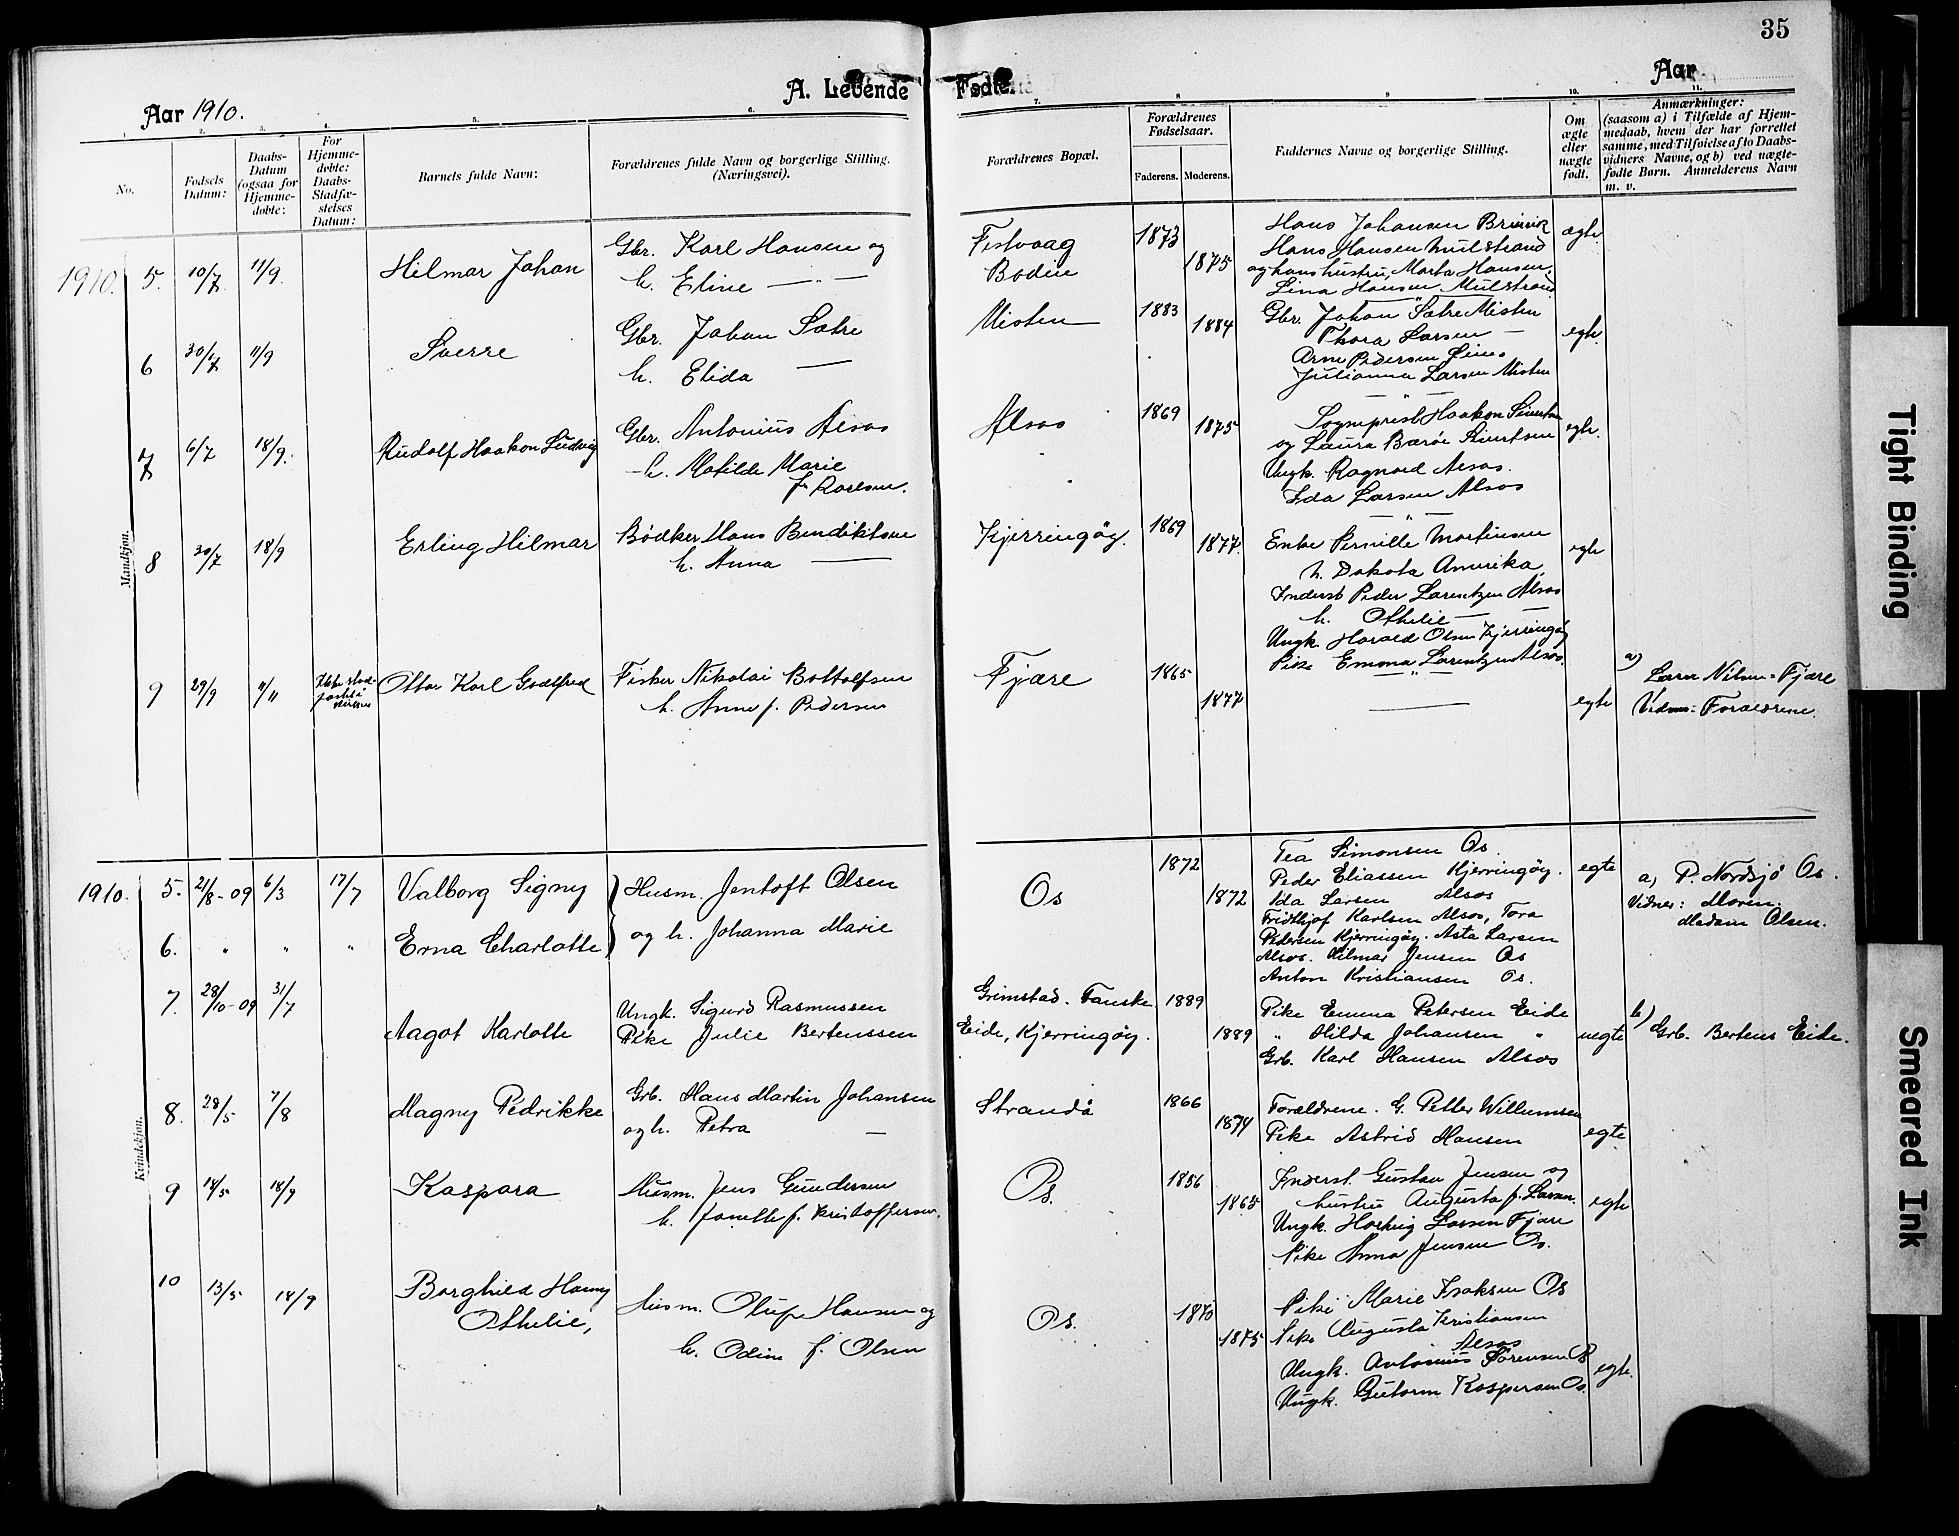 35
Aar 1910.
A. Levende Fødte.
Aar
1.
2.
3.
4.
5.
6.
7.
8.
9.
10.
11.
No.
Fødsels Datum:
Daabs-Datum (ogsaa for Hjemme-døbte:
For Hjemme-døbte: Daabs-Stadfæ-stelses Datum:
Barnets fulde Navn:
Forældrenes fulde Navn og borgerlige Stilling.
(Næringsvei).
Forældrenes Bopæl.
Forældrenes Fødselsaar.
Faderens. Moderens.
Faddernes Navne og borgerlige Stilling.
Om ægte eller uægte født.
Anmærkninger:
(saasom a) i Tilfælde af Hjem-
medaab, hvem der har forrettet
samme, med Tilføielse af to Daabs-
vidners Navne, og b) ved uægte-
fødte Børn. Anmelderens Navn
m. v.
Mandkjøn.
1910. 5. 10/7 11/9. Hilmar Johan
Gbr. Karl Hansen og
h. Eline — " —
Festvaag
Bodin
1873
1875
Hans Johansen
Hans Hansen Mulstrand
og hans hustru, Marta Hansen,
Lina Hansen Mulstrand
ægte
6 30/7 11/9 Sverre
Gbr. Johan Sætre
h. Elida —
Misten
1883
1884
Gbr. Johan Sætre Misten
Thora Larsen —
Arne Pedersen
Julianna Larsen Misten
egte.
7 6/7 18/9. Rudolf Haakon Ludvig
Gbr. Antonius Alsos
h. Matilde Marie
f. Karlsen.
Alsos
1869
1875
Sogneprest Haakon Sivertsen
og Laura Barøe Sivertsen
Ungk. Ragnvald Alsos.
Ida Larsen Alsos
egte.
8 30/7 18/9 Erling Hilmar
Bødker Hans Bendiktsen
h. Anna —
Kjerringøy.
1869
1877
Enke Pernille Martinsen
h. Dakota Amerika
Inderst Peder Larentzen Alsos
h. Othelie —
Ungk. Harald Olsen Kjerringøy
Pike Emma Larentzen Alsos.
egte
9 29/9 11/11 Ikke stad-
fæstet i
kirken
Ottar Karl Godtfred
Fisker Nikolai Bottolfsen
h. Anne f. Pedersen
Fjære
1865
1877
egte
a) Lærer Nilsen - Fjære
Vidner: Forældrene.
Kvindekjøn.
1910. 5. 21/8-09 6/3 17/7 Valborg Signy
Husm. Jentoft Olsen
6. " " " Erna Charlotte
og h. Johanna Marie
Os
1872
1872
Tea Simonsen Os.
Peder Eliassen Kjerringøy.
Ida Larsen Alsos
Fridthjof Karlsen Alsos, Tora
Pedersen Kjerringøy. Asta Larsen
Alsos. Hilmar Jensen Os
Anton Kristiansen Os.
egte
a) P. Nordsjø Os.
Vidner: Moren.
Madam Olsen.
7. 28/10-09 31/7 Aagot Karlotte
Ungk. Sigurd Rasmussen
Pike Julie Bertenssen
Grimstad. Fauske
Eide, Kjerringøy.
1889
1889
Pike Emma Petersen Eide
" Hilda Johansen "
Grb. Karl Hansen Alsos
uegte
b) Grb. Bertens Eide.
8. 28/5 7/8 Magny Pedrikke
Grb. Hans Martin Johansen
og h. Petra —
Strandå
1866
1874
Forældrene. G. Petter Willumsen
Pike Astrid Hansen
egte
9 18/5 18/9 Kaspara
Husm. Jens Gundersen
h. Janette f. Kristoffersen.
Os.
1856
1865
Inderst. Gustav Jensen og
hustru Augusta f. Larsen.
Ungk. Hartvig Larsen Fjære
Pike Anna Jensen Os.
egte
10 13/5 18/9 Borghild Hanny
Othelie,
Husm. Oluf Hansen og
h. Odine f. Olsen
Os.
1870
1875
Pike Marie Isaksen Os
Pike Augusta Kristiansen
Alsos
Ungk. Antonius Sørensen Os
Ungk. Gutorm Kaspersen Os.
egte.
Tight Binding
Smeared Ink